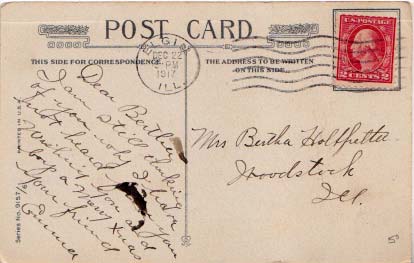 POST CARD
THIS SIDE FOR CORRESPONDENCE
THE ADDRESS TO BE WRITTEN
ON THIS SIDE.
ELGIN
DEC 22
PM
1917
ILL.
U.S. POSTAGE
2 CENTS 2
Dear Bertha
I am still thinking
of you why I have
not heard from you
Wishing you and
boy a Merry Xmas
Your friend
Emma
Mrs Bertha
Woodstock
Ill.
PRINTED IN U.S.A.
Series No. 915
5